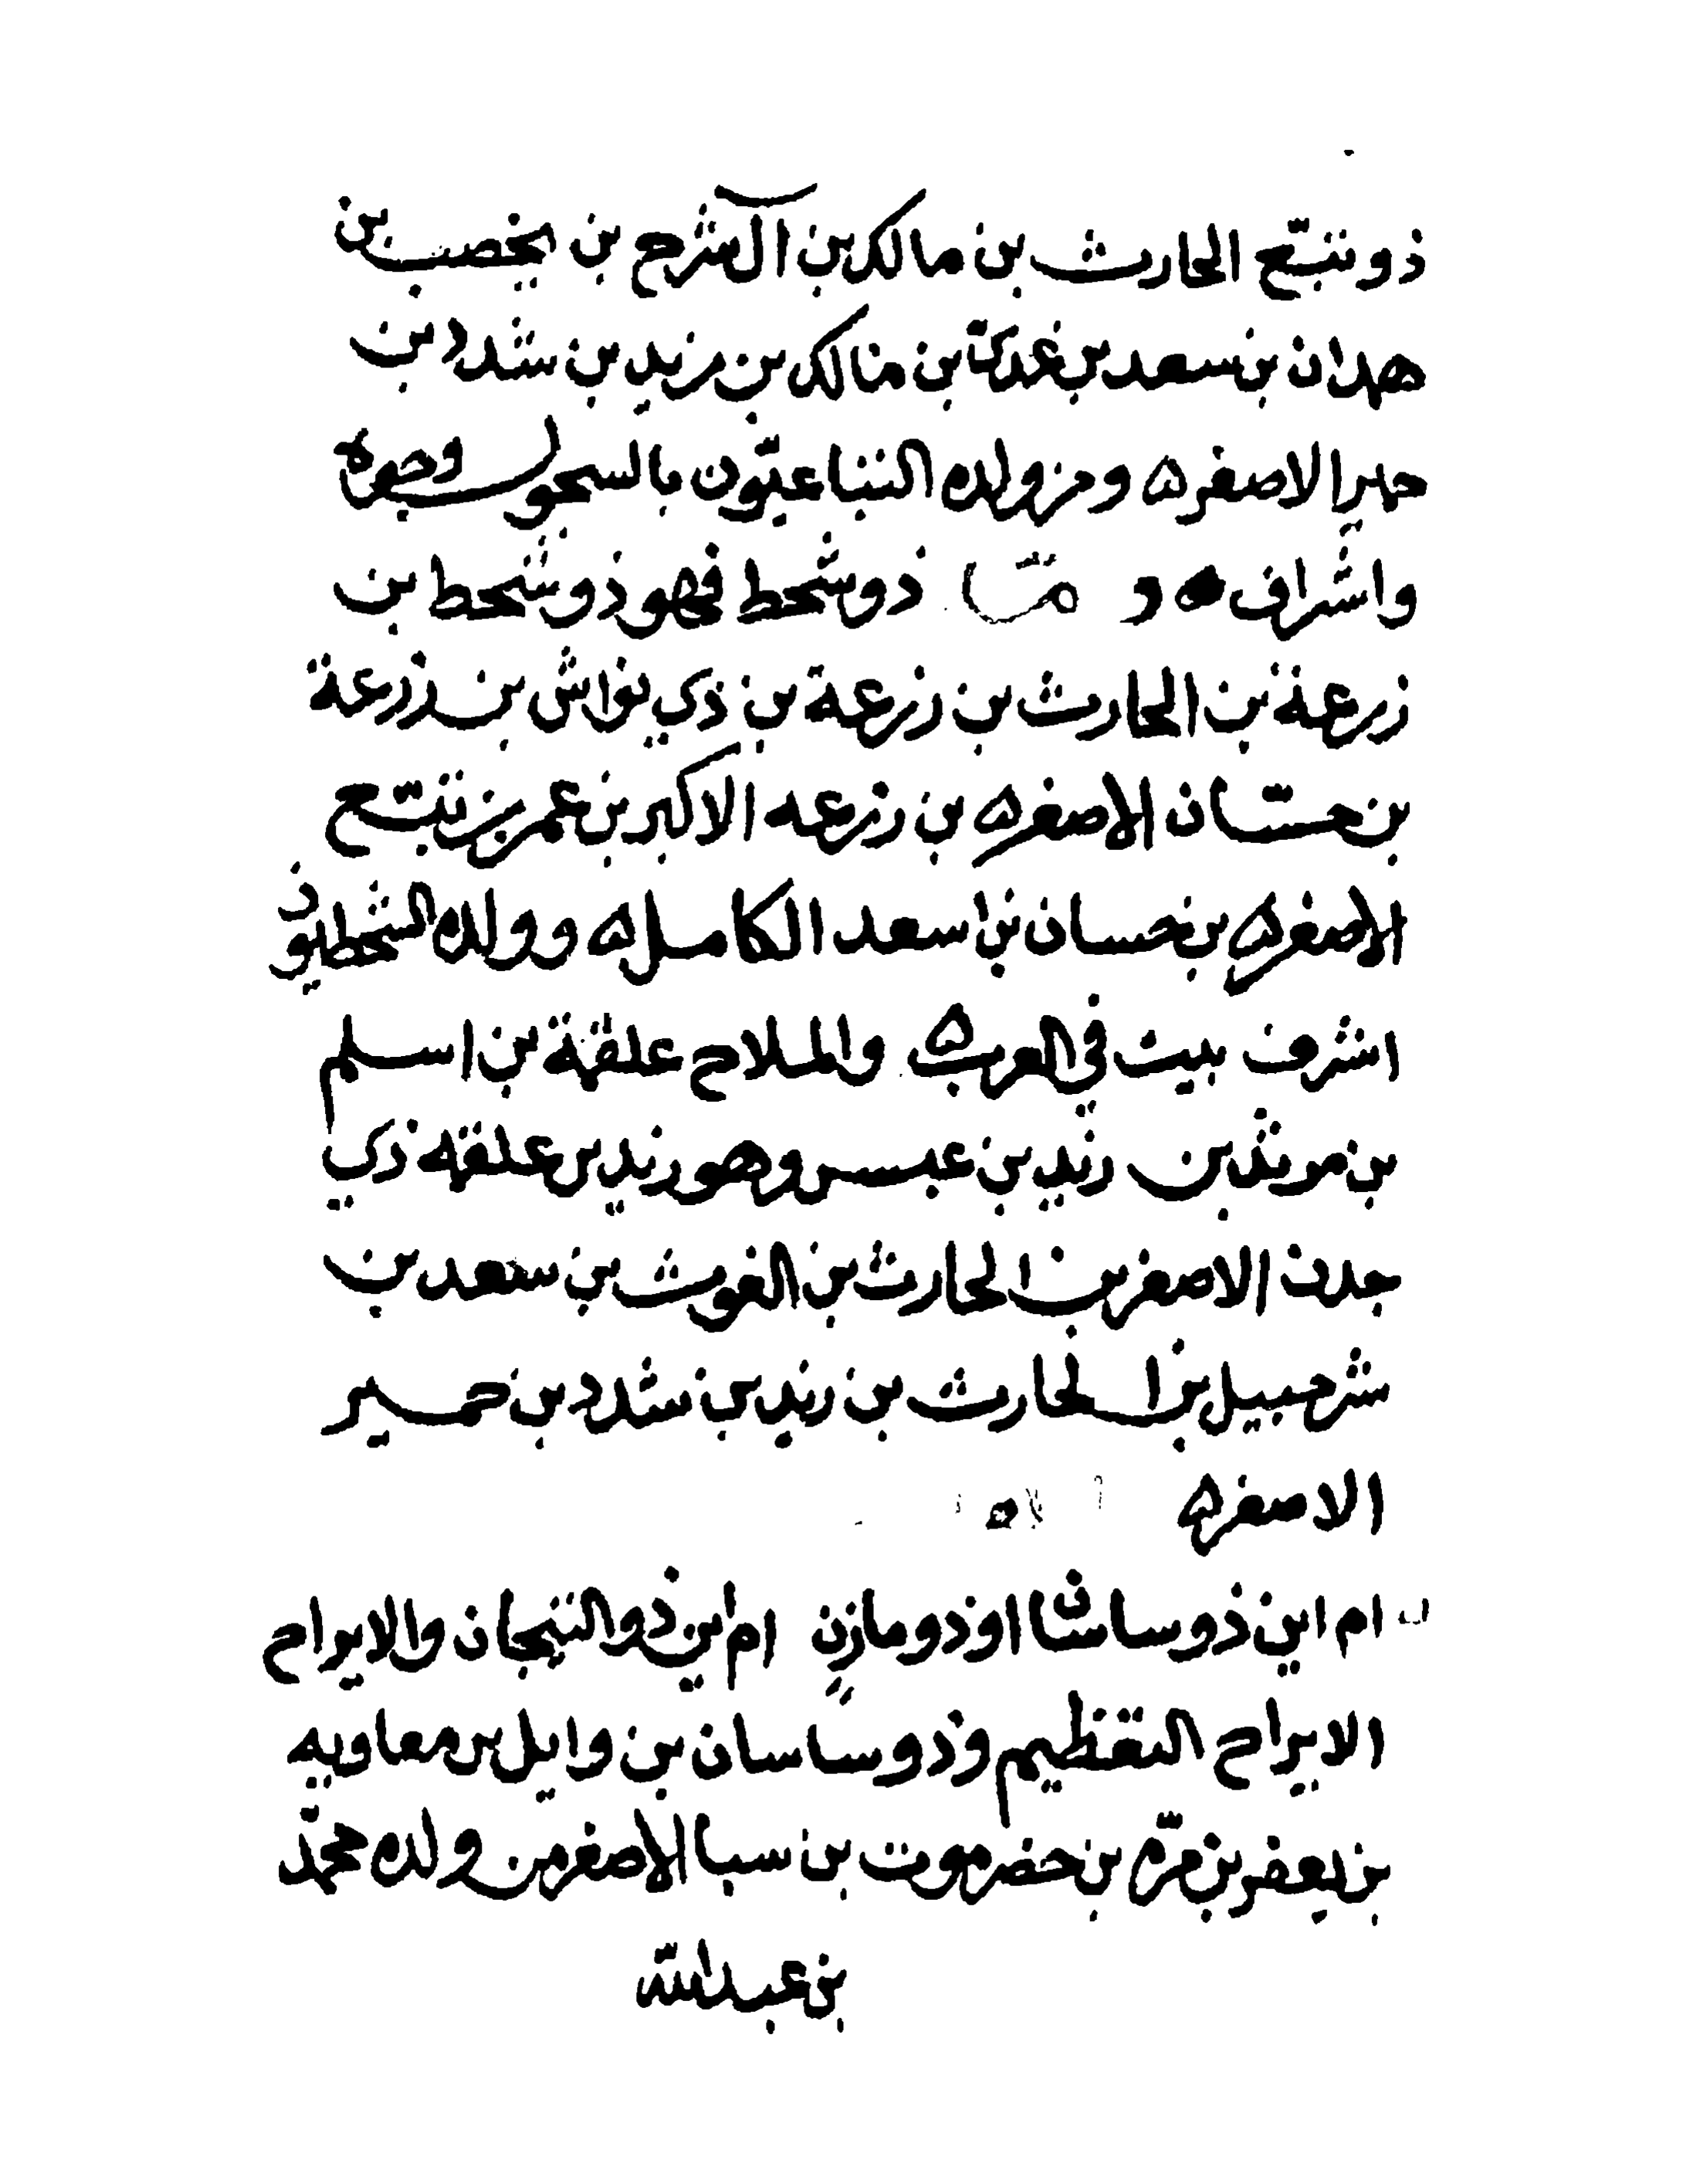 ذو نتبع الحارث بن مالك بن آل شرح بن يحصب بن
هدان بن سعد بن مالك بن زيد بن شدد بن
حمير الاصغر ه ومن ولده التباعيون بالسحول وحوه
واشراف ه و ذو شحط فهو ذو شحط بن
زرعة بن الحارث بن زرعة بن ذي نواش بن زرعة
بن حسان الاصغر ه بن زرعه الاكبر بن عمر بن تبع
الاصغر ه بن حسان بن اسعد الكامل ه وولده الشحطيون
اشرف بيت في العرب ه والملاح علقمة بن اسلم
بن مرثد بن زيد بن عبس وهو زيد بن علقه ذي
جدن الاصغر بن الحارث بن الغوث بن سعد بن
شرحبيل بن الحارث بن زيد بن شدد بن حمير
الاصغر ه
ام اين ذو ساسان او ذو مازن ام اين ذو التيجان والايراح
الايراح التعظيم وذو ساسان بن وايل بن معاويه
بن يعفر بن مرة بن حضرموت بن سبا الاصغر من ولده محمد
بن عبد الله